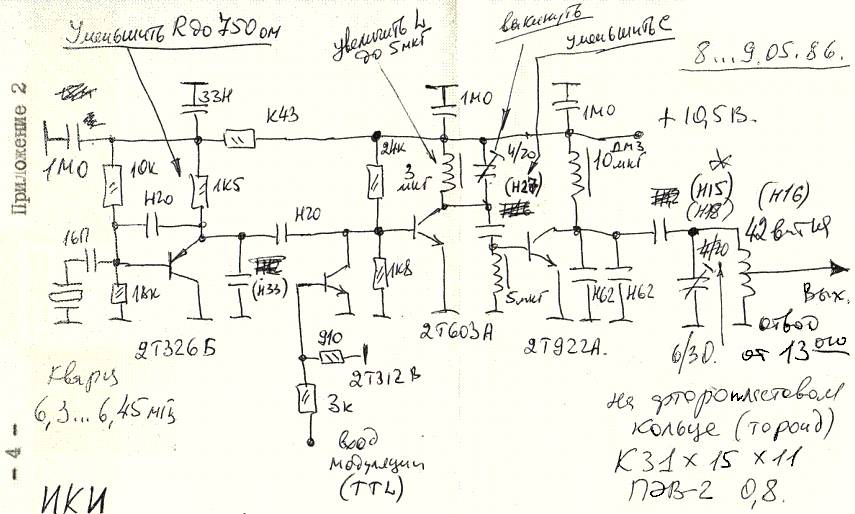 Уменьшить R до 750 ом
увеличить L
до 5 мкг
выкинуть
уменьшить C
8...9.05.86.
Приложение 2
33Н
К43
1М0
1М0
+10,5В.
1М0
10К
1К5
Н20
Н20
24К
3
мкг
4/20
(Н27)
10мкг
ДМ3
(Н15)
(Н18)
(Н16)
42 витка
16П
18К
(Н33)
1К8
5мкг
Н62
Н62
4/20
6/30.
Вых.
отвод
от 13ого
2Т326Б
910
2Т312В
2Т603А
2Т922А.
Кварц
6,3...6,45мгц
3К
вход
модуляции
(TTL)
на фторопластовом
кольце (тороид)
К31×15×11
ПЭВ-2 0,8.
- 4 -
ИКИ